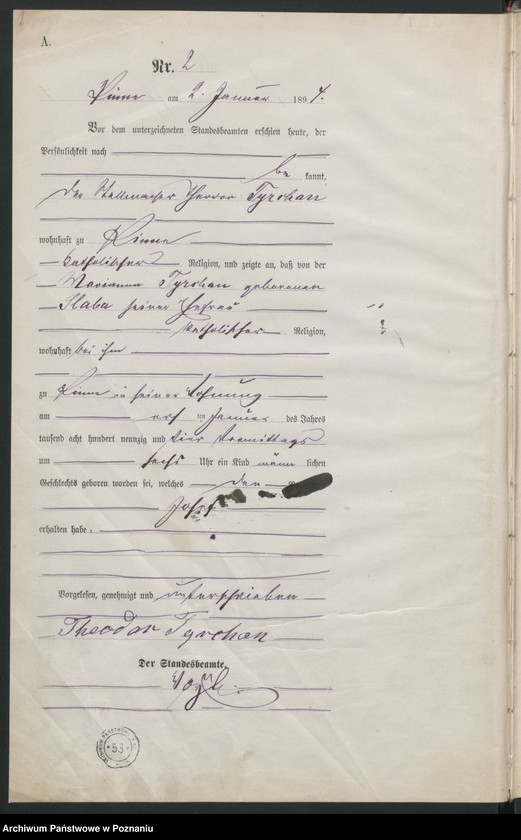 A.
Nr. 2
Pinne am 2. Januar 1894.
Vor dem unterzeichneten Standesbeamten erschien heute, der
Persönlichkeit nach
be kannt,
der Stellmacher Theodor Tyrchan
wohnhaft zu Pinne
katholischer Religion, und zeigte an, daß von der
Marianna Tyrchan geborenen
Slaba seiner Ehefrau
katholischer Religion,
wohnhaft bei ihm
zu Pinne in seiner Wohnung
am ersten Januar des Jahres
tausend acht hundert neunzig und vier Vormittags
um sechs Uhr ein Kind männ lichen
Geschlechts geboren worden sei, welches den
Josef
erhalten habe.
Vorgelesen, genehmigt und unterschrieben
Theodor Tyrchan
Der Standesbeamte.
53
Archiwum Państwowe w Poznaniu